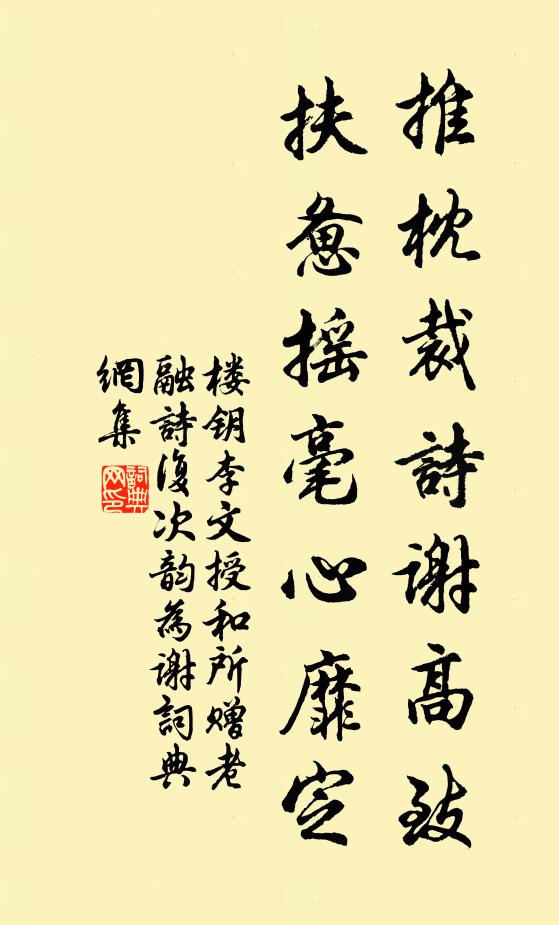 推枕裁詩謝高致
扶惫摇毫心靡定
楼钥李文授和所赠老
融詩復次韵為谢詞典
網集
詞典網印